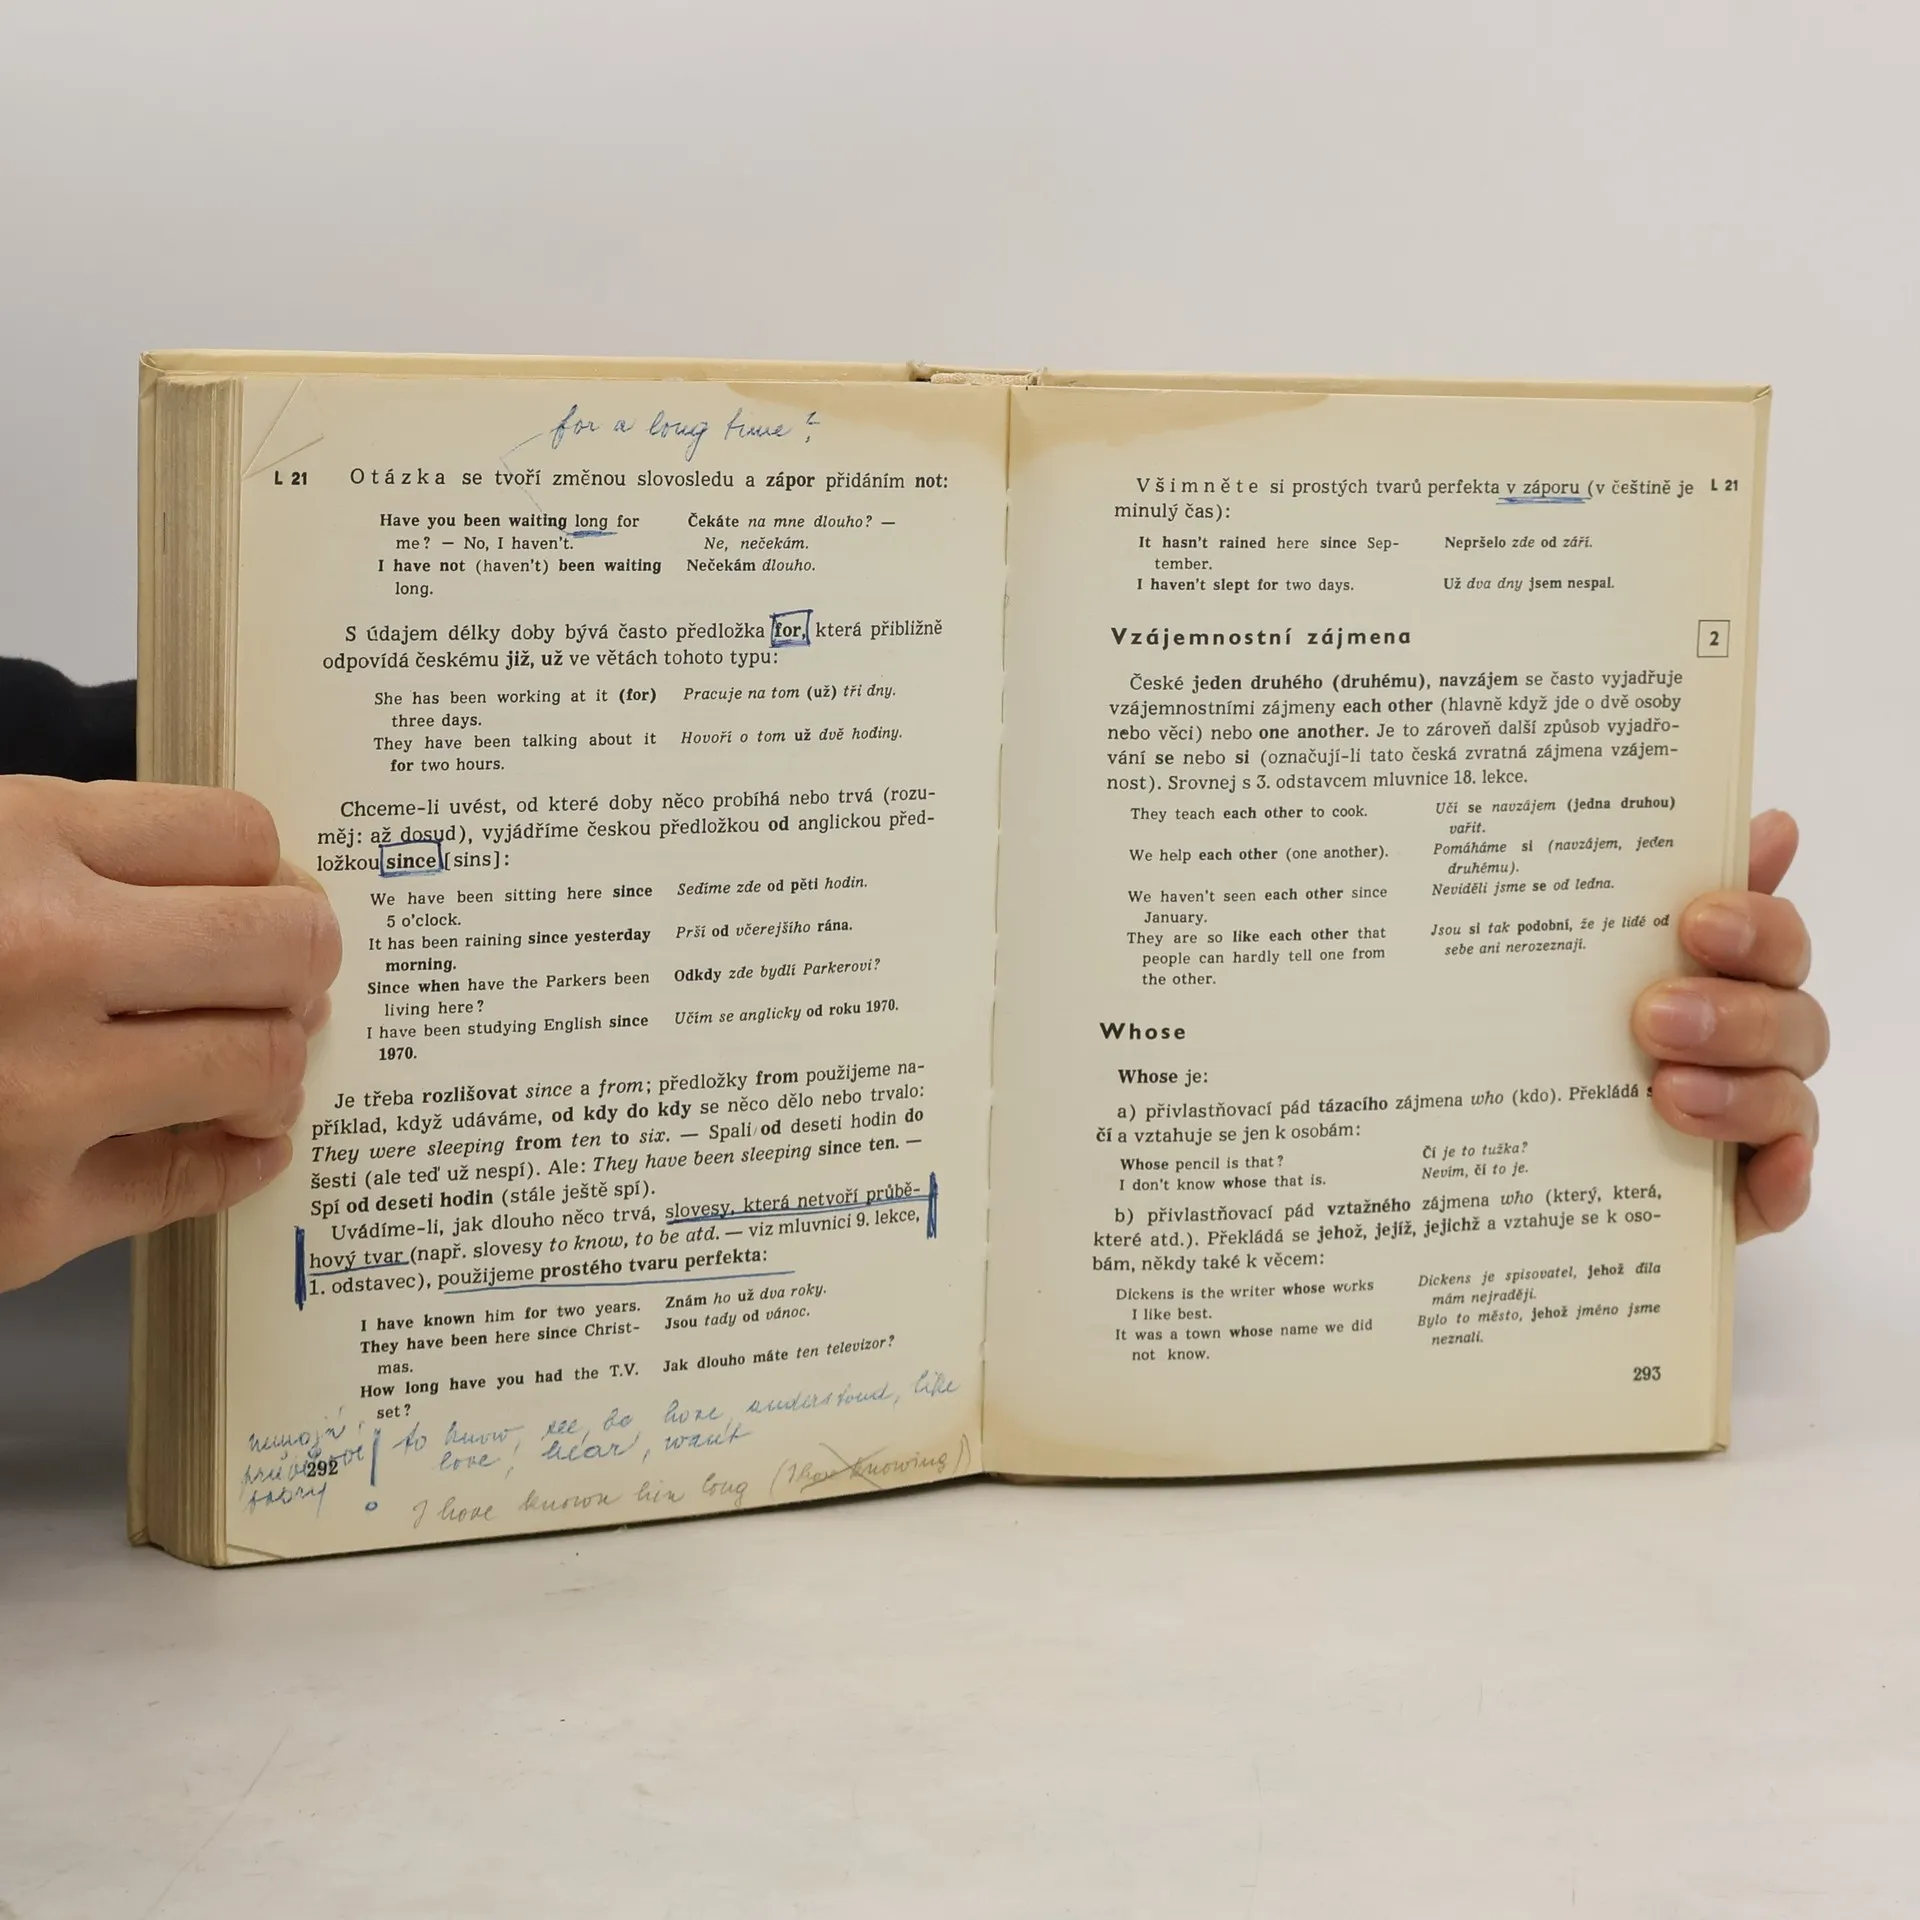 for a long time?
L 21
Otázka se tvoří změnou slovosledu a zápor přidáním not:
Have you been waiting long for
me? — No, I haven't.
I have not (haven't) been waiting
long.
Čekáte na mne dlouho? —
Ne, nečekám.
Nečekám dlouho.
S údajem délky doby bývá často předložka for, která přibližně
odpovídá českému již, už ve větách tohoto typu:
She has been working at it (for)
three days.
They have been talking about it
for two hours.
Pracuje na tom (už) tři dny.
Hovoří o tom už dvě hodiny.
Chceme-li uvést, od které doby něco probíhá nebo trvá (rozu-
měj: až dosud), vyjádříme českou předložkou od anglickou před-
ložkou since [sins]:
We have been sitting here since
5 o'clock.
It has been raining since yesterday
morning.
Since when have the Parkers been
living here?
I have been studying English since
1970.
Sedíme zde od pěti hodin.
Prší od včerejšího rána.
Odkdy zde bydlí Parkerovi?
Učím se anglicky od roku 1970.
Je třeba rozlišovat since a from; předložky from použijeme na-
příklad, když udáváme, od kdy do kdy se něco dělo nebo trvalo:
They were sleeping from ten to six. — Spali od deseti hodin do
šesti (ale teď už nespí). Ale: They have been sleeping since ten. —
Spí od deseti hodin (stále ještě spí).
Uvádíme-li, jak dlouho něco trvá, slovesy, která netvoří průbě-
hový tvar (např. slovesy to know, to be atd. — viz mluvnici 9. lekce,
1. odstavec), použijeme prostého tvaru perfekta:
I have known him for two years.
They have been here since Christ-
mas.
How long have you had the T.V.
set?
Znám ho už dva roky.
Jsou tady od vánoc.
Jak dlouho máte ten televizor?
to know, see, be have, understand, like
love, hear, want
292
I have known him long (I have knowing)
Všimněte si prostých tvarů perfekta v záporu (v češtině je
minulý čas):
L 21
It hasn't rained here since Sep-
tember.
I haven't slept for two days.
Nepršelo zde od září.
Už dva dny jsem nespal.
Vzájemnostní zájmena
2
České jeden druhého (druhému), navzájem se často vyjadřuje
vzájemnostními zájmeny each other (hlavně když jde o dvě osoby
nebo věci) nebo one another. Je to zároveň další způsob vyjadřo-
vání se nebo si (označují-li tato česká zvratná zájmena vzájem-
nost). Srovnej s 3. odstavcem mluvnice 18. lekce.
They teach each other to cook.
We help each other (one another).
We haven't seen each other since
January.
They are so like each other that
people can hardly tell one from
the other.
Učí se navzájem (jedna druhou)
vařit.
Pomáháme si (navzájem, jeden
druhému).
Neviděli jsme se od ledna.
Jsou si tak podobní, že je lidé od
sebe ani nerozeznají.
Whose
Whose je:
a) přivlastňovací pád tázacího zájmena who (kdo). Překládá
čí a vztahuje se jen k osobám:
Whose pencil is that?
I don't know whose that is.
Čí je to tužka?
Nevím, čí to je.
b) přivlastňovací pád vztažného zájmena who (který, která,
které atd.). Překládá se jehož, jejíž, jejichž a vztahuje se k oso-
bám, někdy také k věcem:
Dickens is the writer whose works
I like best.
It was a town whose name we did
not know.
Dickens je spisovatel, jehož díla
mám nejraději.
Bylo to město, jehož jméno jsme
neznali.
293